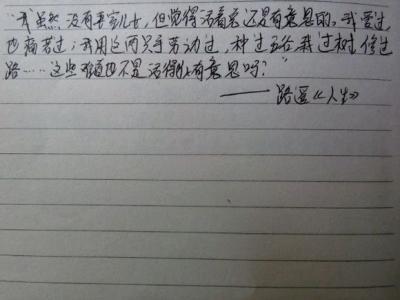 "我虽然没有妻室儿女,但觉得活着总还是有意思的。我爱过,
也痛苦过;我用这两只手劳动过,种过五谷,栽过树,修过
路……这些难道也不是活得有意思吗?"
——路遥《人生》